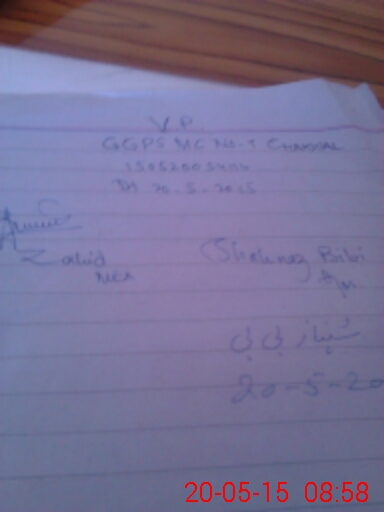 V.P
GGPS MC No-1 CHAKWAL
Dt 20-5-2015
Zahid
MEA
Shahnaz Bibi
شہناز بی بی
20-5-20
20-05-15 08:58